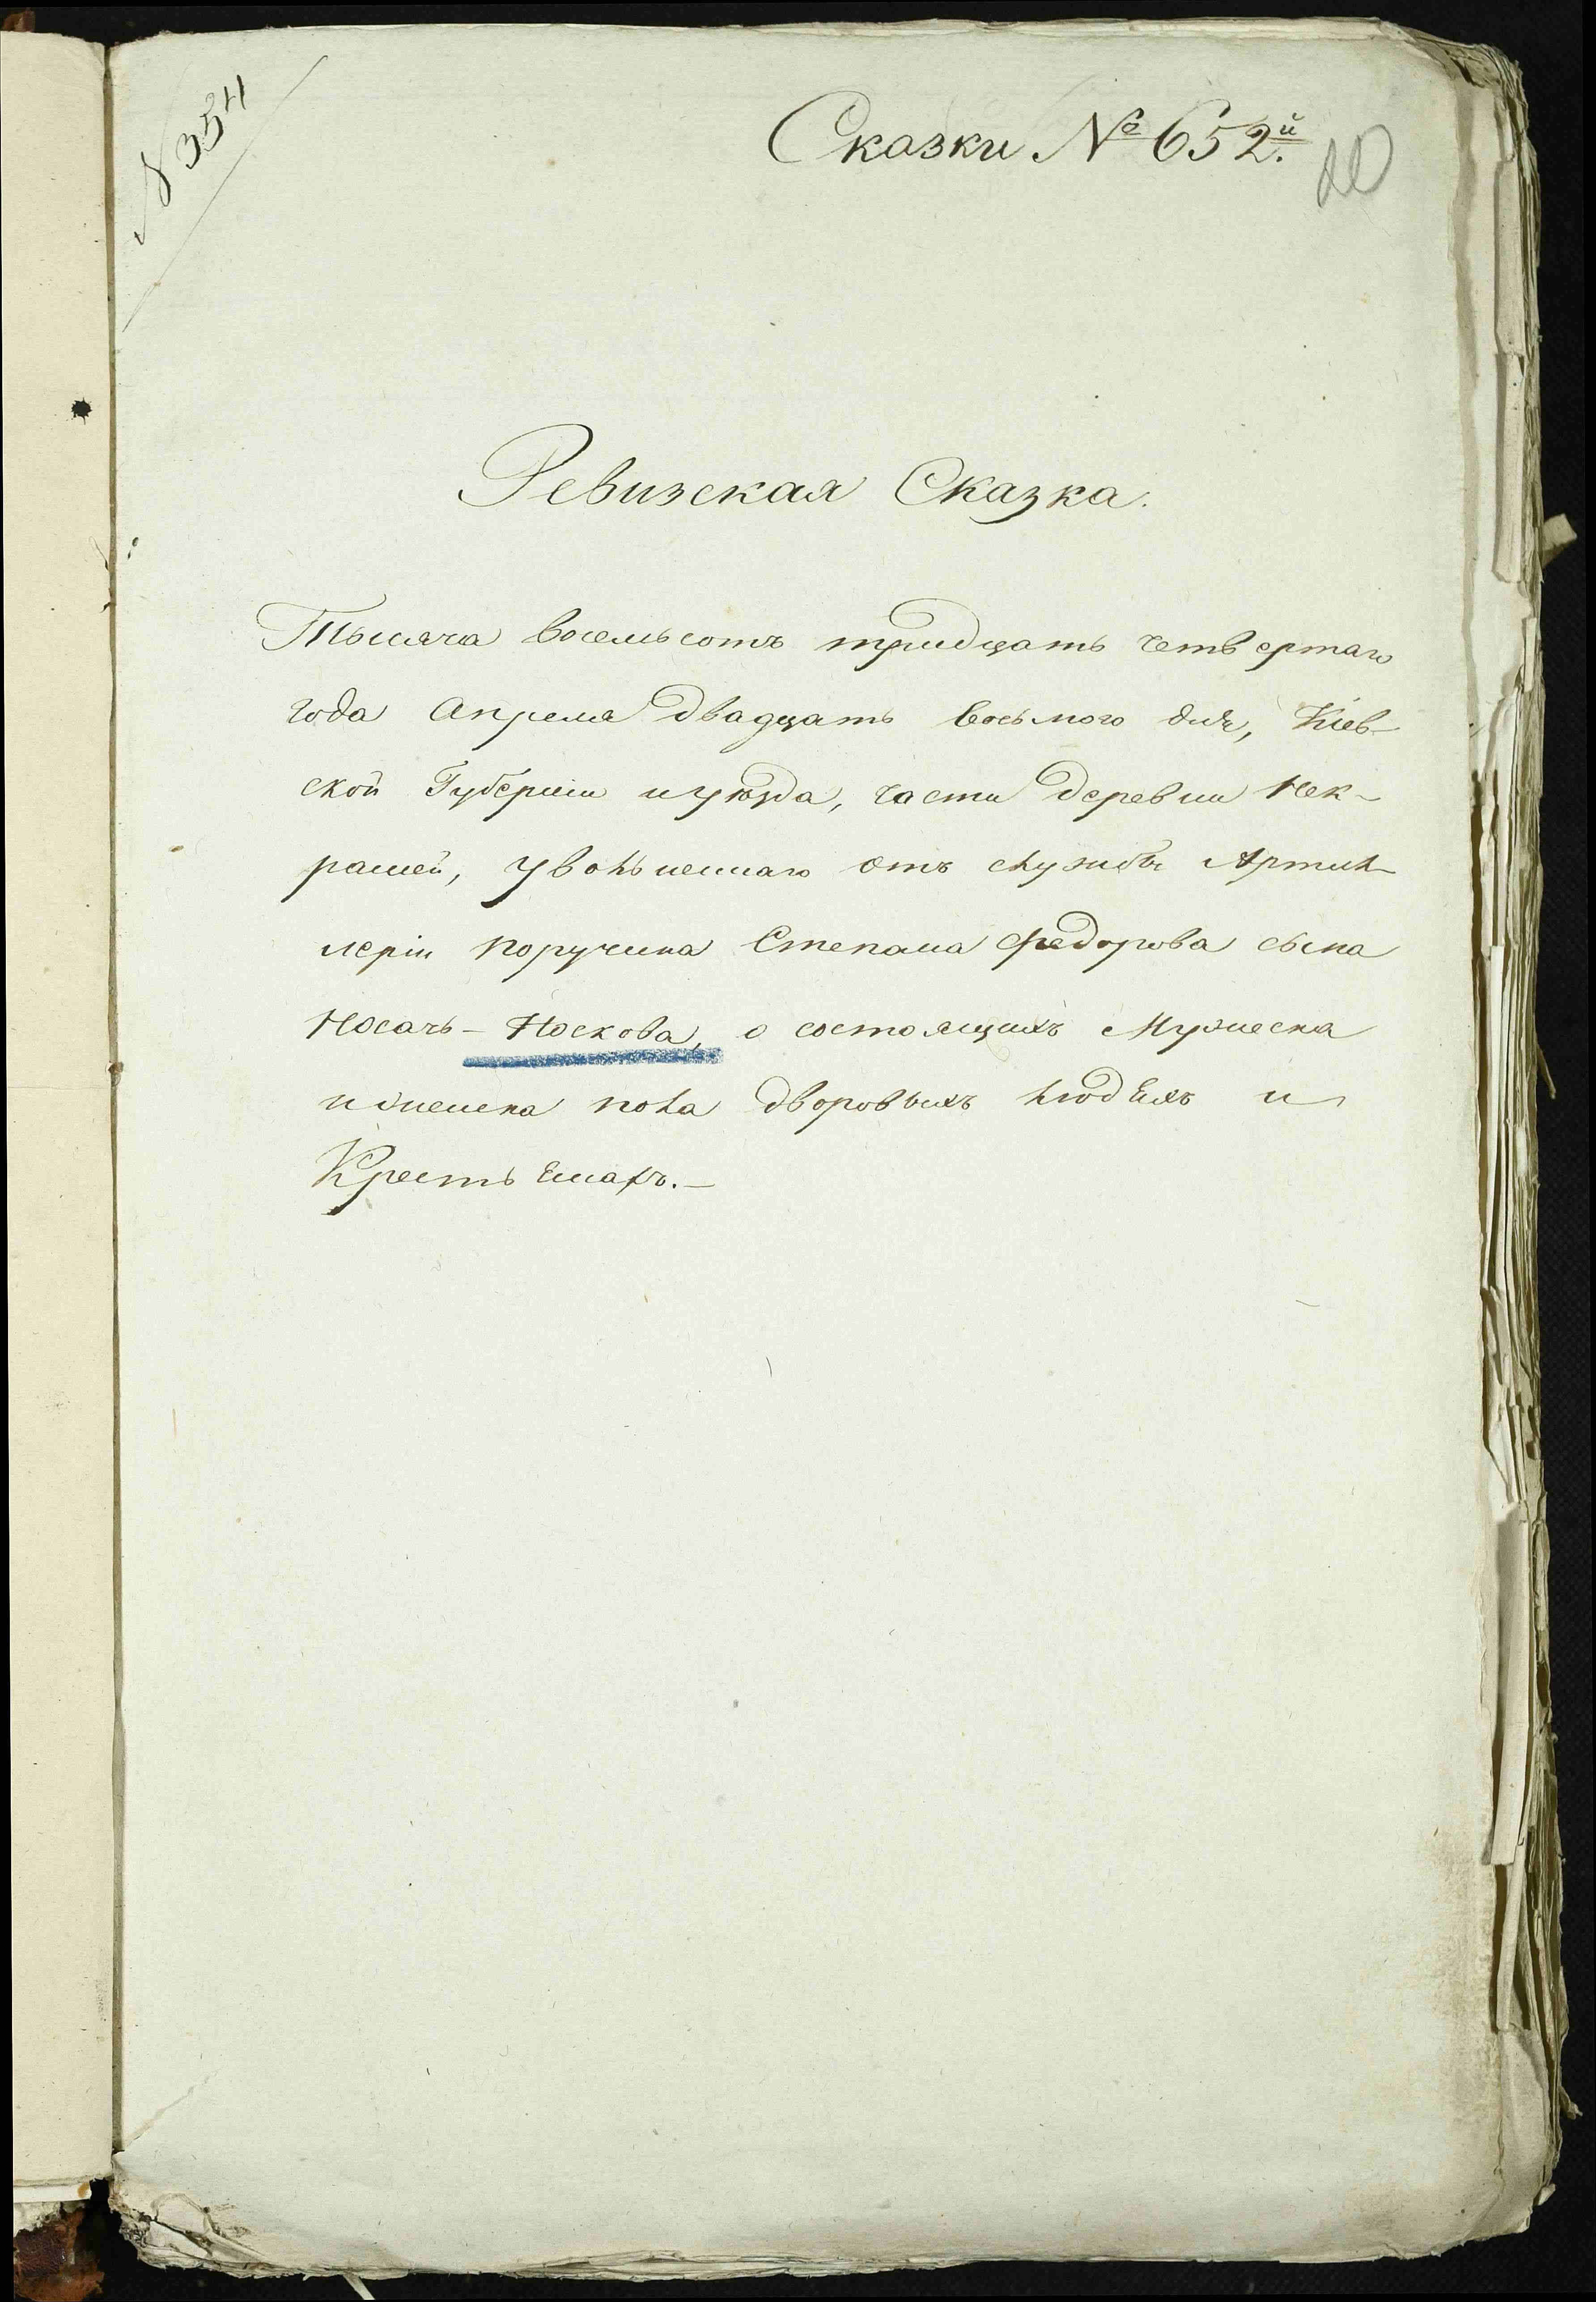 № 354
Сказки № 652й.
Ревизская Сказка.
Тысяча восемьсотъ тридцать четвертаго
года Апреля двадцать восьмого дня, Кіев-
ской Губерніи и уѣзда, части деревни Нек-
рашей, увольненнаго отъ службы Артил-
леріи поручика Степана Федорова сына
Носачь-Носкова, о состоящихъ Мужеска
и женска пола дворовыхъ людѣхъ и
Крестьянахъ.-